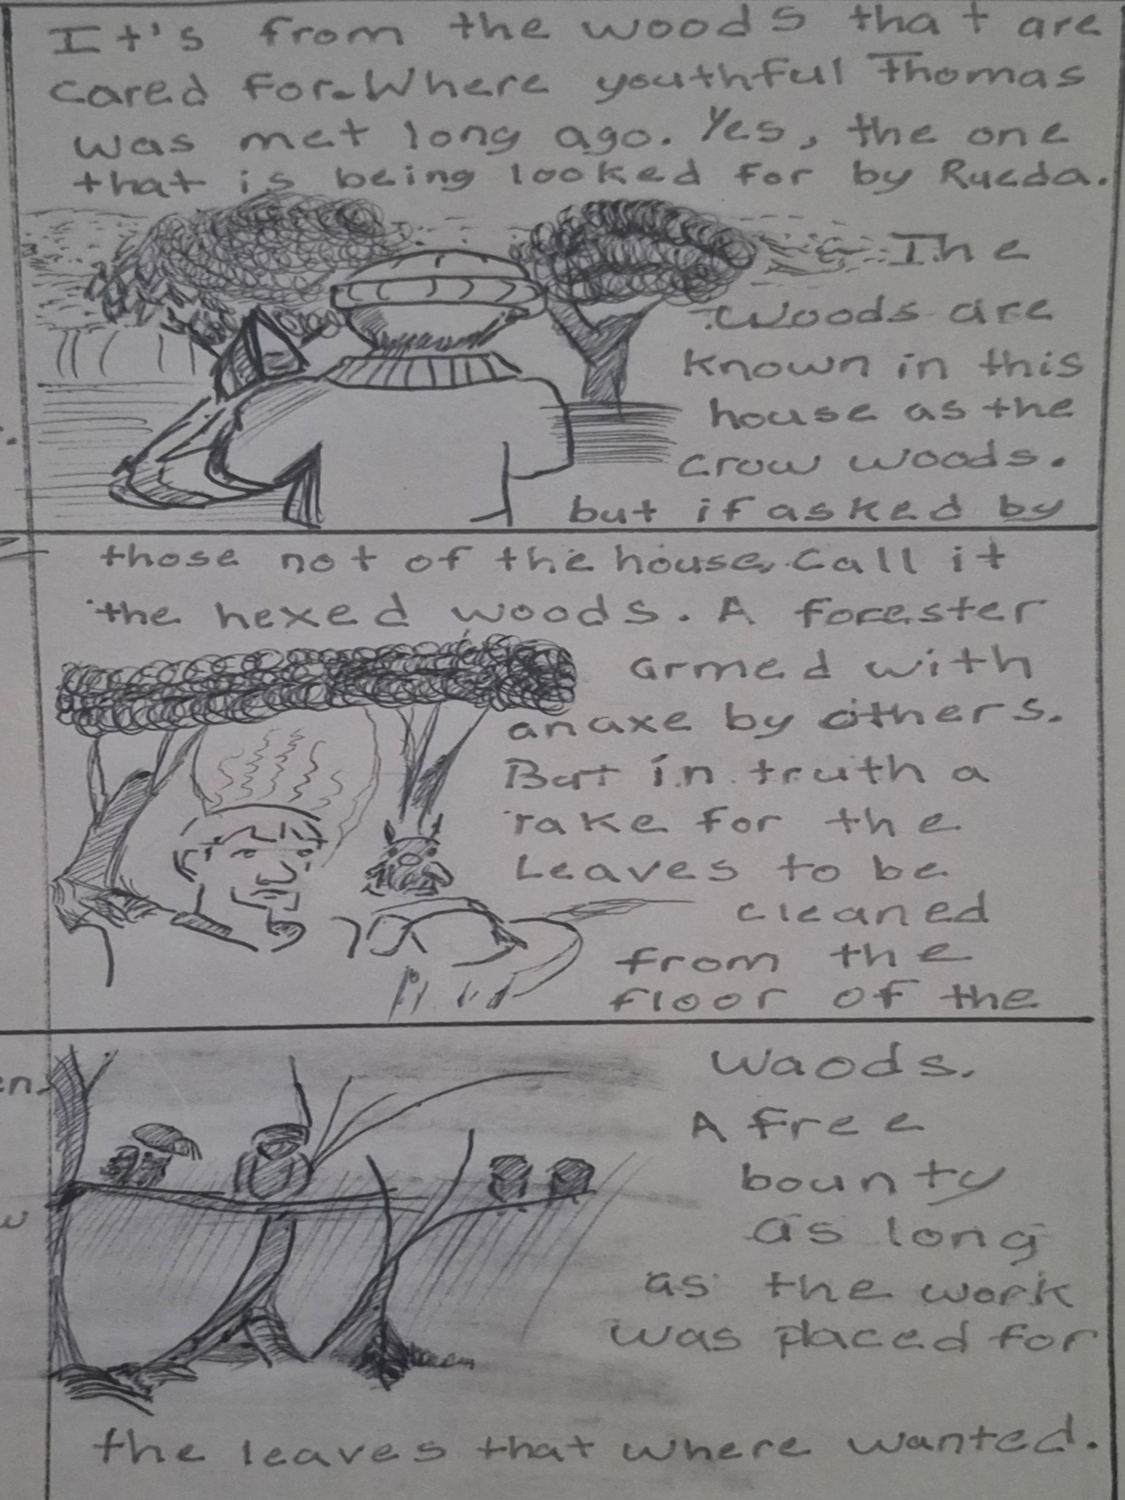 It's from the woods that are
cared for. Where youthful Thomas
was met long ago. Yes, the one
that is being looked for by Rueda.
The
woods are
known in this
house as the
crow woods.
but if asked by
those not of the house, Call it
the hexed woods. A forester
armed with
anaxe by others.
But in truth a
rake for the
Leaves to be
cleaned
from the
floor of the
waods.
A free
bounty
as long
as the work
was placed for
the leaves that where wanted.